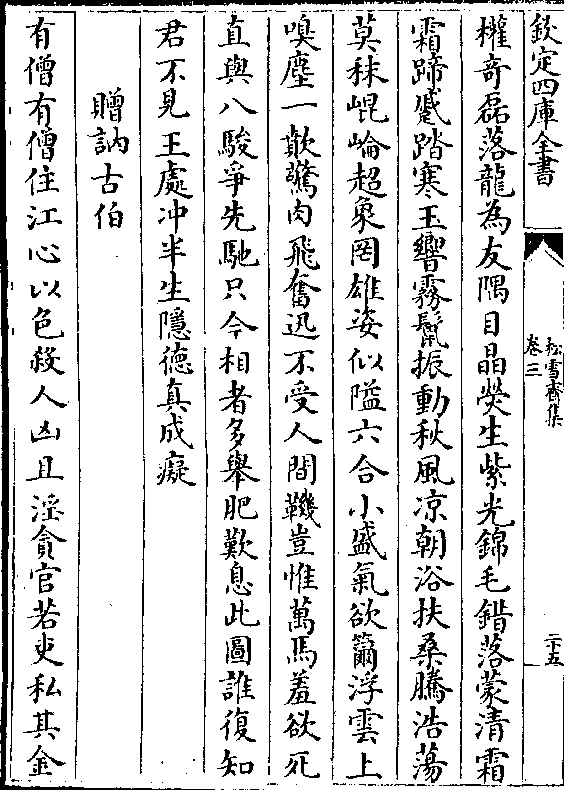 欽定四庫全書
松雪齋集
卷三
二十五
權竒磊落龍為友隅目晶熒生紫光錦毛錯落蒙清霜
霜蹄蹙踏寒玉響霧鬛振動秋風凉朝浴扶桑騰浩蕩
莫秣崐崘超象罔雄姿似隘六合小盛氣欲籋浮雲上
嗅塵一歕驚肉飛奮迅不受人間鞿豈惟萬馬羞欲死
直與八駿爭先馳只今相者多舉肥歎息此圖誰復知
君不見王處冲半生隱徳真成癡
贈訥古伯
有僧有僧住江心以色殺人凶且淫貪官若吏私其金